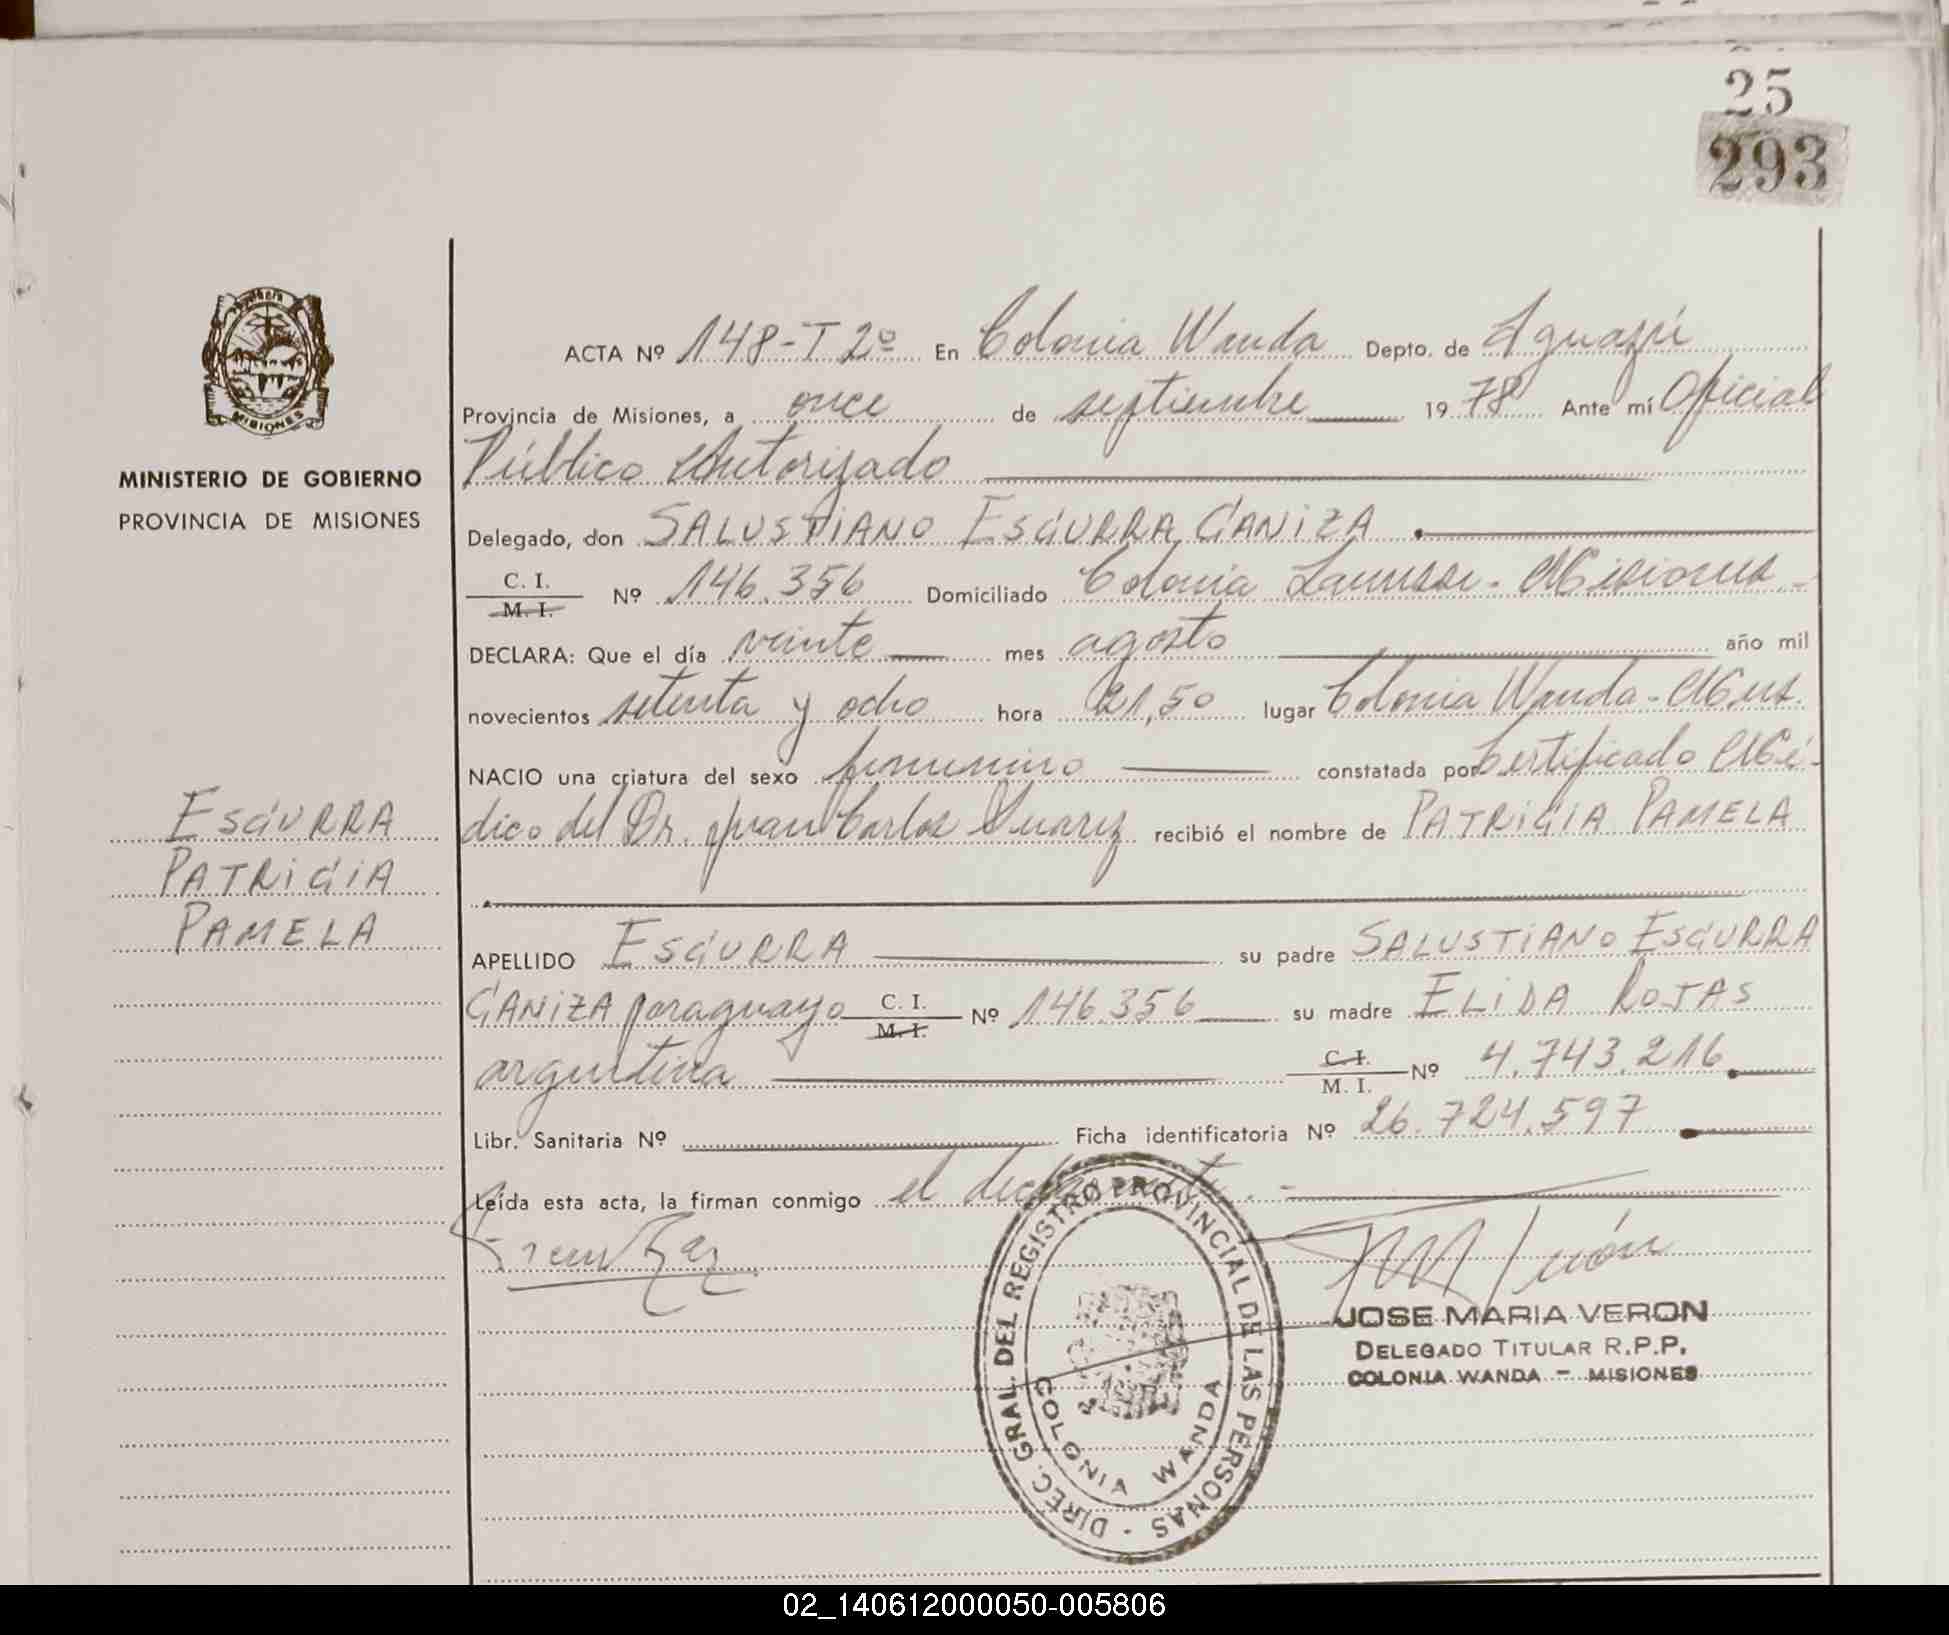 25
293
ACTA Nº 148-T 2º En Colonia Wanda Depto. de Iguazú
Provincia de Misiones, a once de septiembre 19 78 Ante mí Oficial
Público Autorizado
MINISTERIO DE GOBIERNO
PROVINCIA DE MISIONES
MISIONES
Delegado, don SALUSTIANO ESCURRA CANIZA
C. I. M. I. Nº 146.356 Domiciliado Colonia Lanusse - Misiones -
DECLARA: Que el día veinte mes agosto año mil
novecientos setenta y ocho hora 21,50 lugar Colonia Wanda - Mnes.
NACIO una criatura del sexo femenino constatada por Certificado Mé-
dico del Dr. Juan Carlos Suarez recibió el nombre de PATRICIA PAMELA
ESCURRA
PATRICIA
PAMELA
APELLIDO ESCURRA su padre SALUSTIANO ESCURRA
CANIZA paraguayo C. I. M. I. Nº 146.356 su madre ELIDA ROJAS
argentina C. I. M. I. Nº 4.743.216
Libr. Sanitaria Nº Ficha identificatoria Nº 26.724.597
Leída esta acta, la firman conmigo el declarante. -
DIREC. GRAL. DEL REGISTRO PROVINCIAL DE LAS PERSONAS -
COLONIA WANDA
JOSE MARIA VERON
DELEGADO TITULAR R.P.P.
COLONIA WANDA - MISIONES
02_140612000050-005806